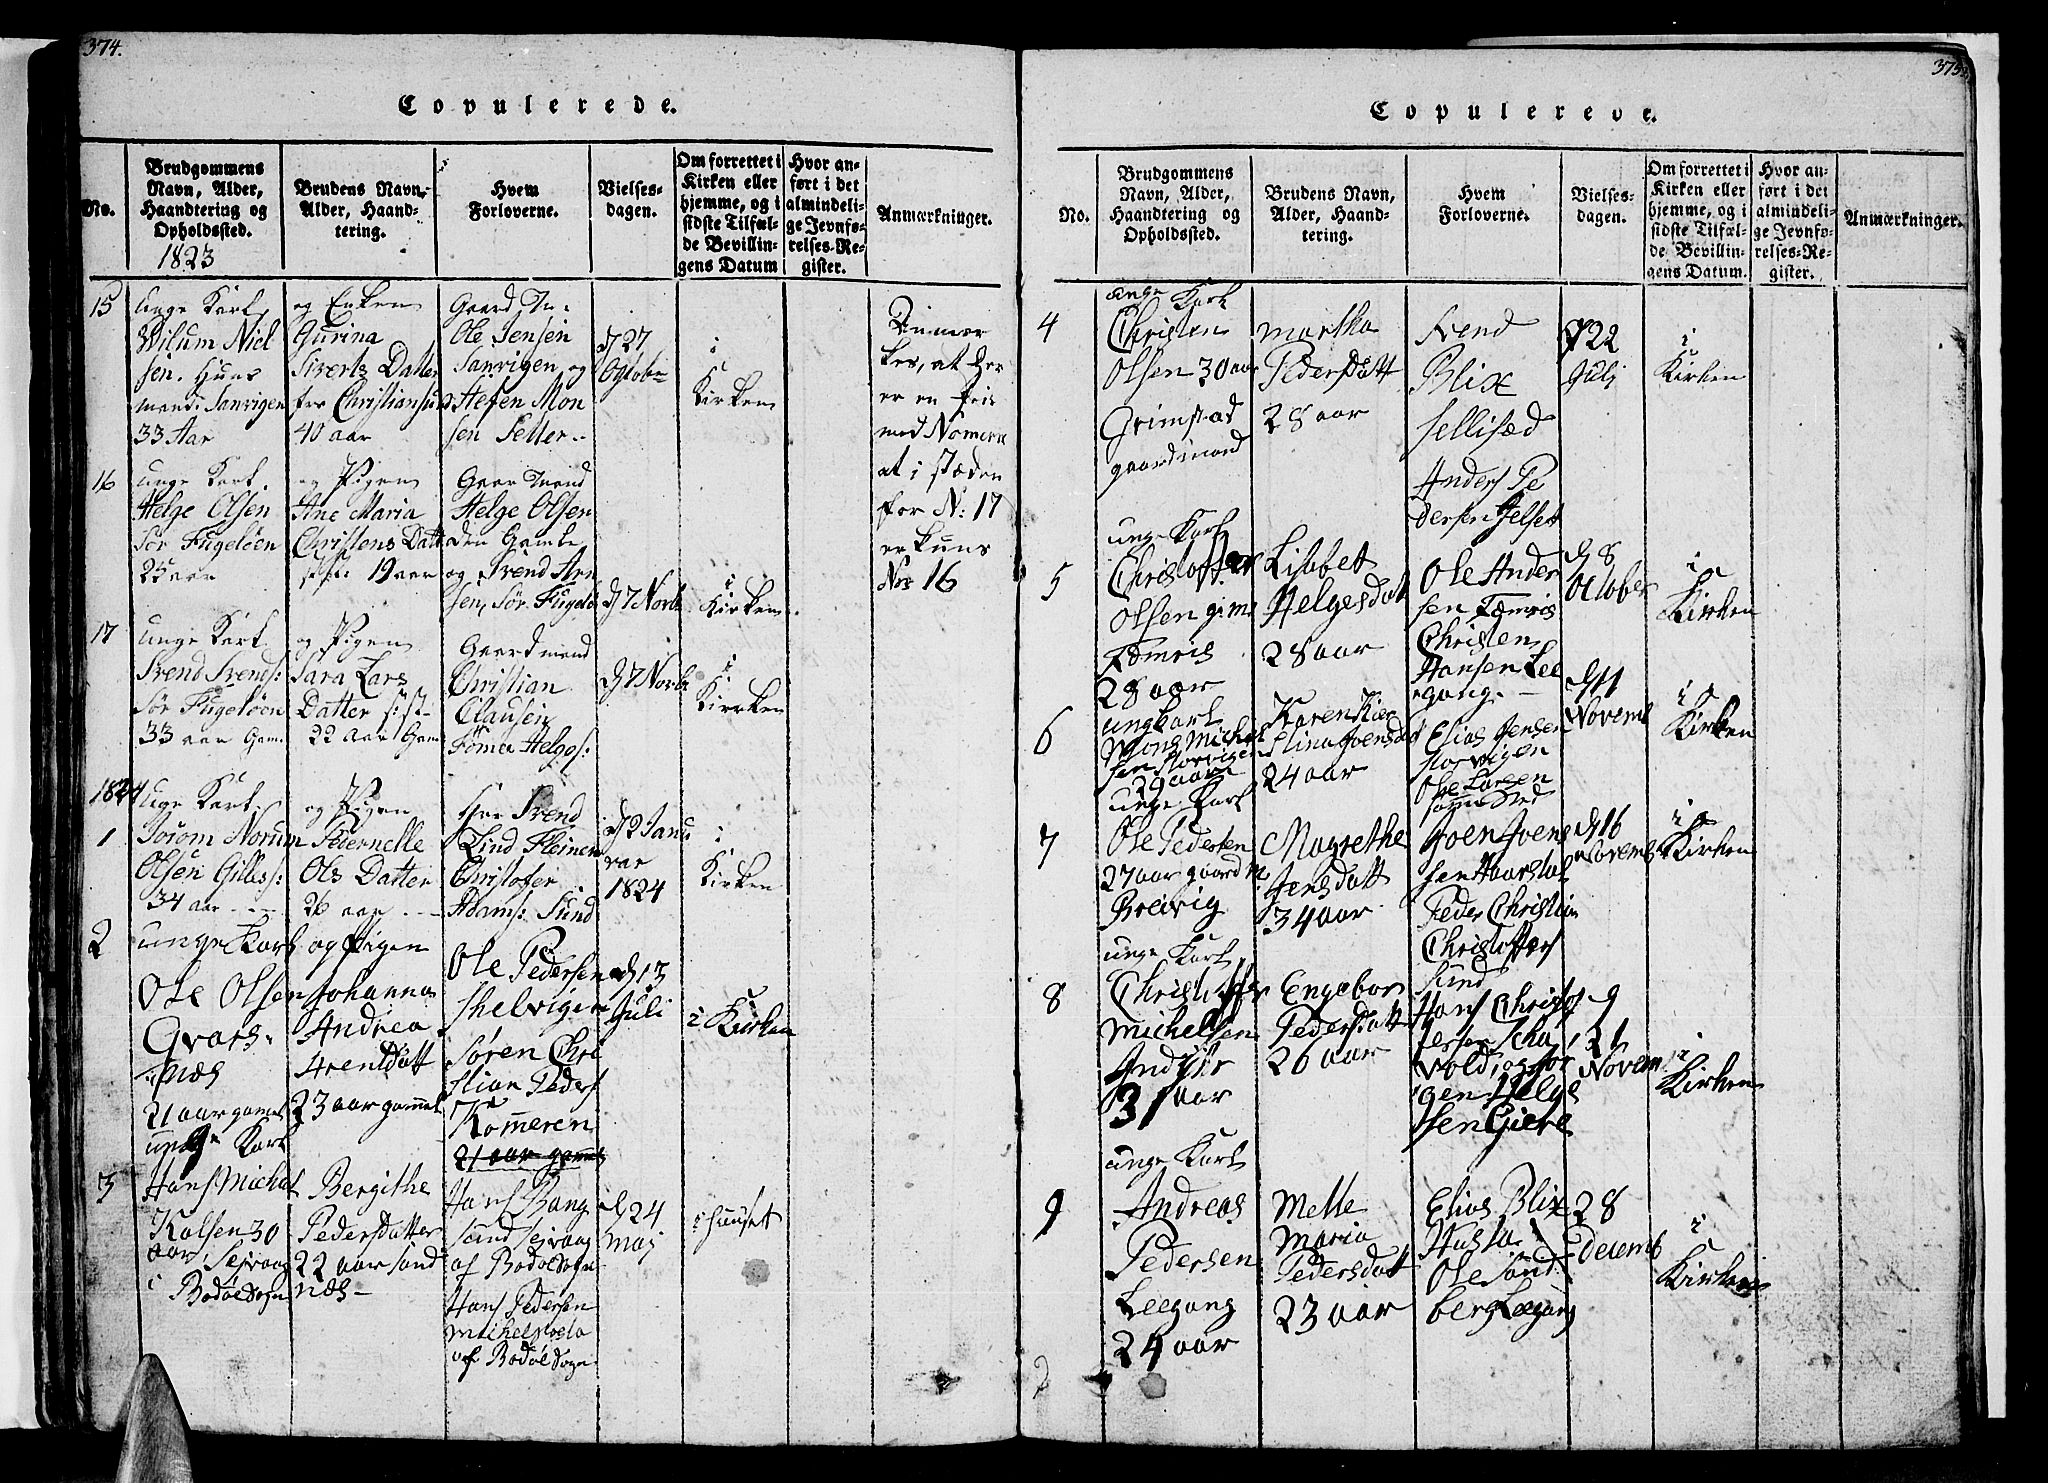 374.
Copulerede.
No.
Brudgommens
Navn, Alder,
Haandtering og
Opholdssted.
1823
Brudens Navn,
Alder, Haand-
tering.
Hvem
Forloverne.
Vielses-
dagen.
Om forrettet i
Kirken eller
hjemme, og i
sidste Tilfæl-
de Bevillin-
gens Datum
Hvor an-
ført i det
almindeli-
ge Jevnfø-
relses-Re-
gister.
Anmærkninger.
15
unge Karl
Wilum Niel
sen. Huus
mand. Sanvigen
33 Aar
og Enken
Gurina
Siverts Datter
fra Christiansund
40 aar
Ole Jensen
Sanvigen og
Stefen Mon
sen Seller
d 27
Ogtobe
i
Kirken
at her
er en feil
med Nomern
at i stæden
for N: 17
er kuns
No 16
16
unge Karl
Helge Olsen
Sør Fugeløen
25 aar
og Pigen
Ane Maria
Christens Datt
19 aar
Gaar Mand
Helge Olsen
den Gamle
og Svend Arn
sen, Sør Fugelø
d 7 Novb
i
Kirken
17
unge Karl
Svend Svends:
Sør Fugeløen
33 aar Gam:
og Pigen
Sara Lars
Datter sist-
22 Aar Gam
Gaardmand
Christian
Clausen
Helges:
d 7 Novb
i
Kirken
1824
1
unge Karl
Norum
Olsen Gilless:
34 aar
og Pigen
Pedernelle
Ols Datter
26 aar
Her Svend
Lind Fleinen
Christofer
Adams: Sund
d 2 Janu
var
1824
i
Kirken
2
unge Karl
Ole Olsen
Grars
næs
21 aar gamel
og Pigen
Johanna
Andrea
Arentdatt
23 aar gammel
Ole Pedersen
Skelvigen
Søren Chri
stian Peders
Kommeren
21 aar gamel
d 13
Juli
i Kirken
3
unge Karl
Hans Michal
Kalsen 30
aar, Seivaag
i Bodøe Sogn
Bergithe
Pedersdatter
22 aar Sand
næs
Hans Bang
Sund Seivaag
af Bodøe Sogn
Hans Pedersen
af Bodøe Sogn
d 24
Maj
i Huuset
375
Copulerede.
No.
Brudgommens
Navn, Alder,
Haandtering og
Opholdssted.
Brudens Navn,
Alder, Haand-
tering.
Hvem
Forloverne.
Vielses-
dagen.
Om forrettet i
Kirken eller
hjemme, og i
sidste Tilfæl-
de Bevillin-
gens Datum.
Hvor an-
ført i det
almindeli-
ge Jevnfø-
relses-Re-
gister.
Anmærkninger.
4
unge Karl
Christen
Olsen 30 aar
Grimstad
gaardmand
Martha
Pedersdatt
28 aar
Svend
Blix
Anders Pe
dersen Jelset
d 22
Julj
i
Kirken
5
unge Karl
Christoffer
Olsen
28 aar
Lisbet
Helgesdatt
28 aar
Ole Ander
sen
Christen
Hansen Lee
gang.
d 8
October
i
Kirken
6
ungkarl
Mons Michel
sen Storvigen
29 aar
Karen Kier
stina Joensdatt
24 aar
Elias Jensen
Storvigen
Ole Larsen
samme Sted
d 11
Novemb
i
Kirken
7
unge Karl
Ole Pedersen
27 aar gaard M.
Breivig
Magrethe
Jensdatt
34 aar
Joen Joen
sen
Peder Christian
Christoffers
Sund
d 16
Novemb
i
Kirken
8
unge Karl
Christoffer
Michelsen
31 aar
Engebor
Pedersdatt
26 aar
Hans Christof
fersen
vold, og
gen Helge
sen Giere
d
21
Novem
i
Kirken
9
unge Karl
Andreas
Pedersen
Leegang
24 aar
Mette
Maria
Pedersdatt
23 aar
Elias Blix
Ole Sand
berg Leegang
28
decemb
i
Kirken